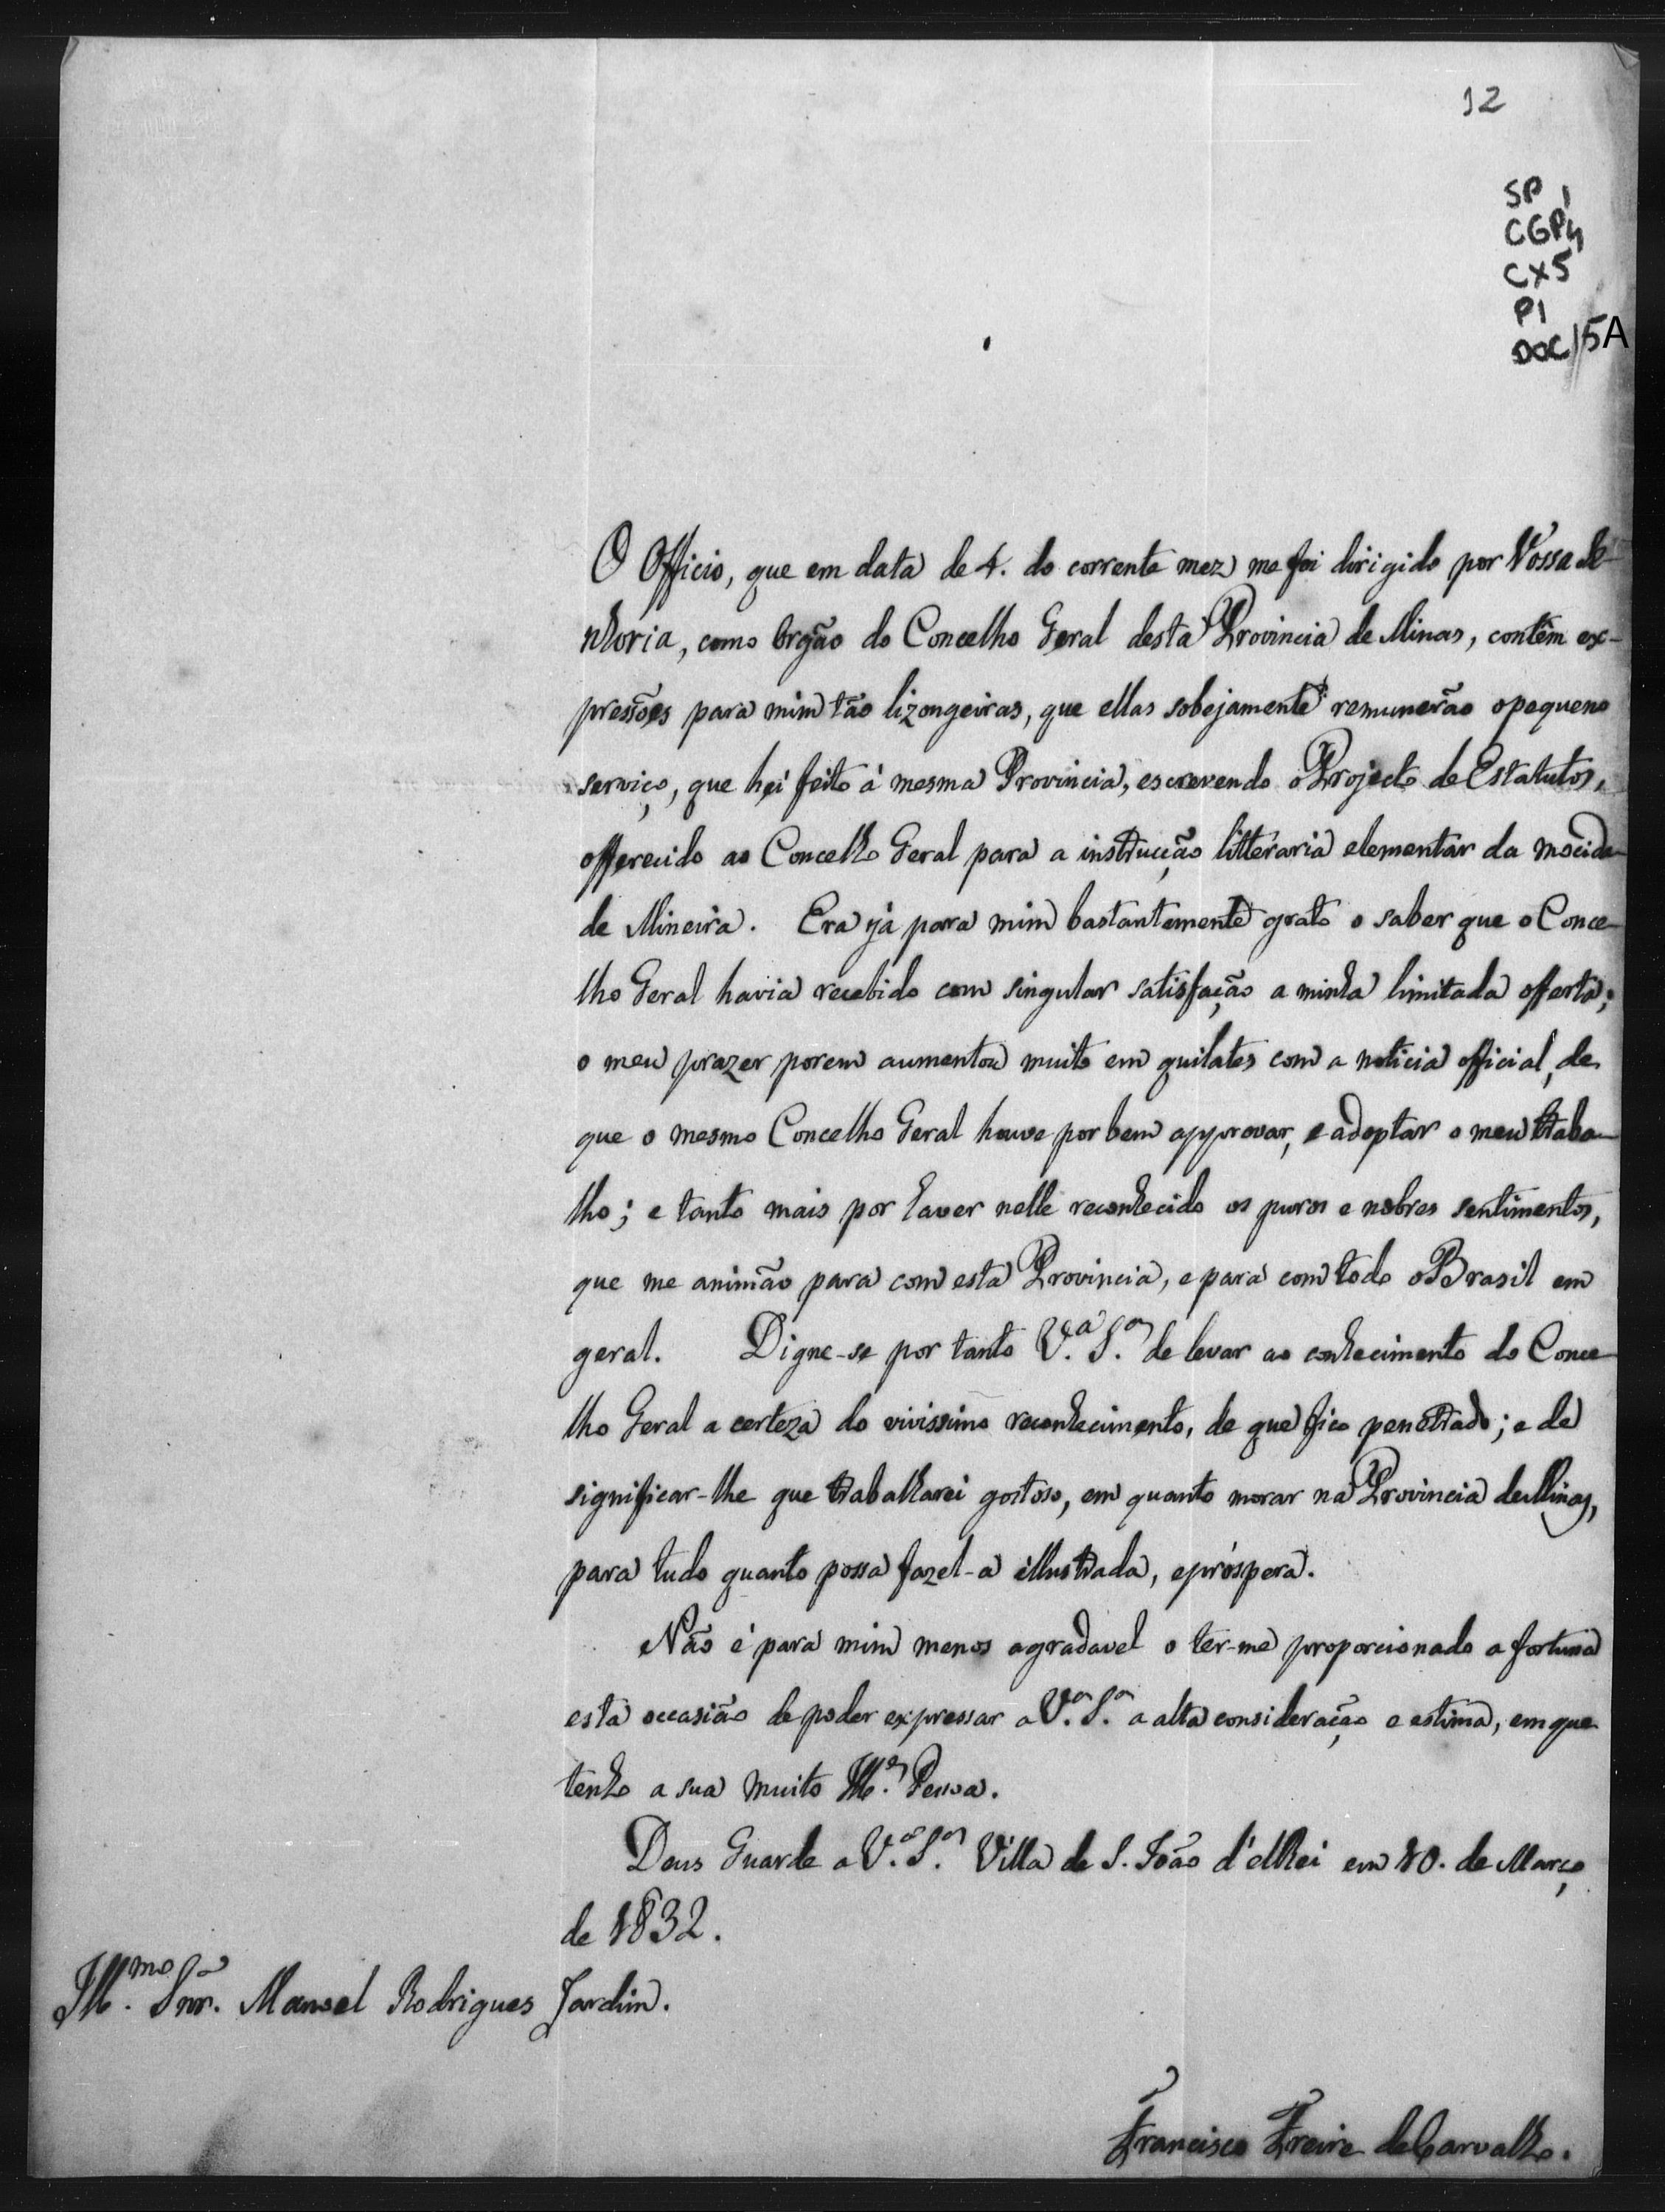 12
SP 1
CGP4
CX5
P1
DOC 15A
O Officio, que em data de 4. do corrente mez me foi dirigido por Vossa Se-
nhoria, como Orgão do Concelho Geral desta Provincia de Minas, contêm ex-
pressões para mim tão lizongeiras, que ellas sobejamente remunerão o pequeno
serviço, que hei feito á mesma Provincia, escrevendo o Projecto de Estatutos,
offerecido ao Concelho Geral para a instrucção litteraria elementar da mocida-
de Mineira. Era já para mim bastantemente grato o saber que o Conce-
lho Geral havia recebido com singular satisfação a minha limitada offerta;
o meu prazer porem aumentou muito em quilates com a noticia official, de
que o mesmo Concelho Geral houve por bem approvar, e adoptar o meu traba-
lho; e tanto mais por haver nelle reconhecido os puros e nobres sentimentos,
que me animão para com esta Provincia, e para com todo o Brasil em
geral. Digne-se por tanto V.ª S.ª de levar ao conhecimento do Conce-
lho Geral a certeza do vivissimo reconhecimento, de que fico penetrado; e de
significar-lhe que trabalharei gostoso, em quanto morar na Provincia de Minas,
para tudo quanto possa fazel-a illustrada, e próspera.
Não é para mim menos agradavel o ter-me proporcionado a fortuna
esta occasião de poder expressar a V.ª S.ª a alta consideração e estima, em que
tenho a sua muito Ill.e Pessoa.
Deus Guarde a V.ª S.ª Villa de S. João d'elRei em 10. de Março
de 1832.
Ill.mo Snr. Manoel Rodrigues Jardim.
Francisco Freire de Carvalho.